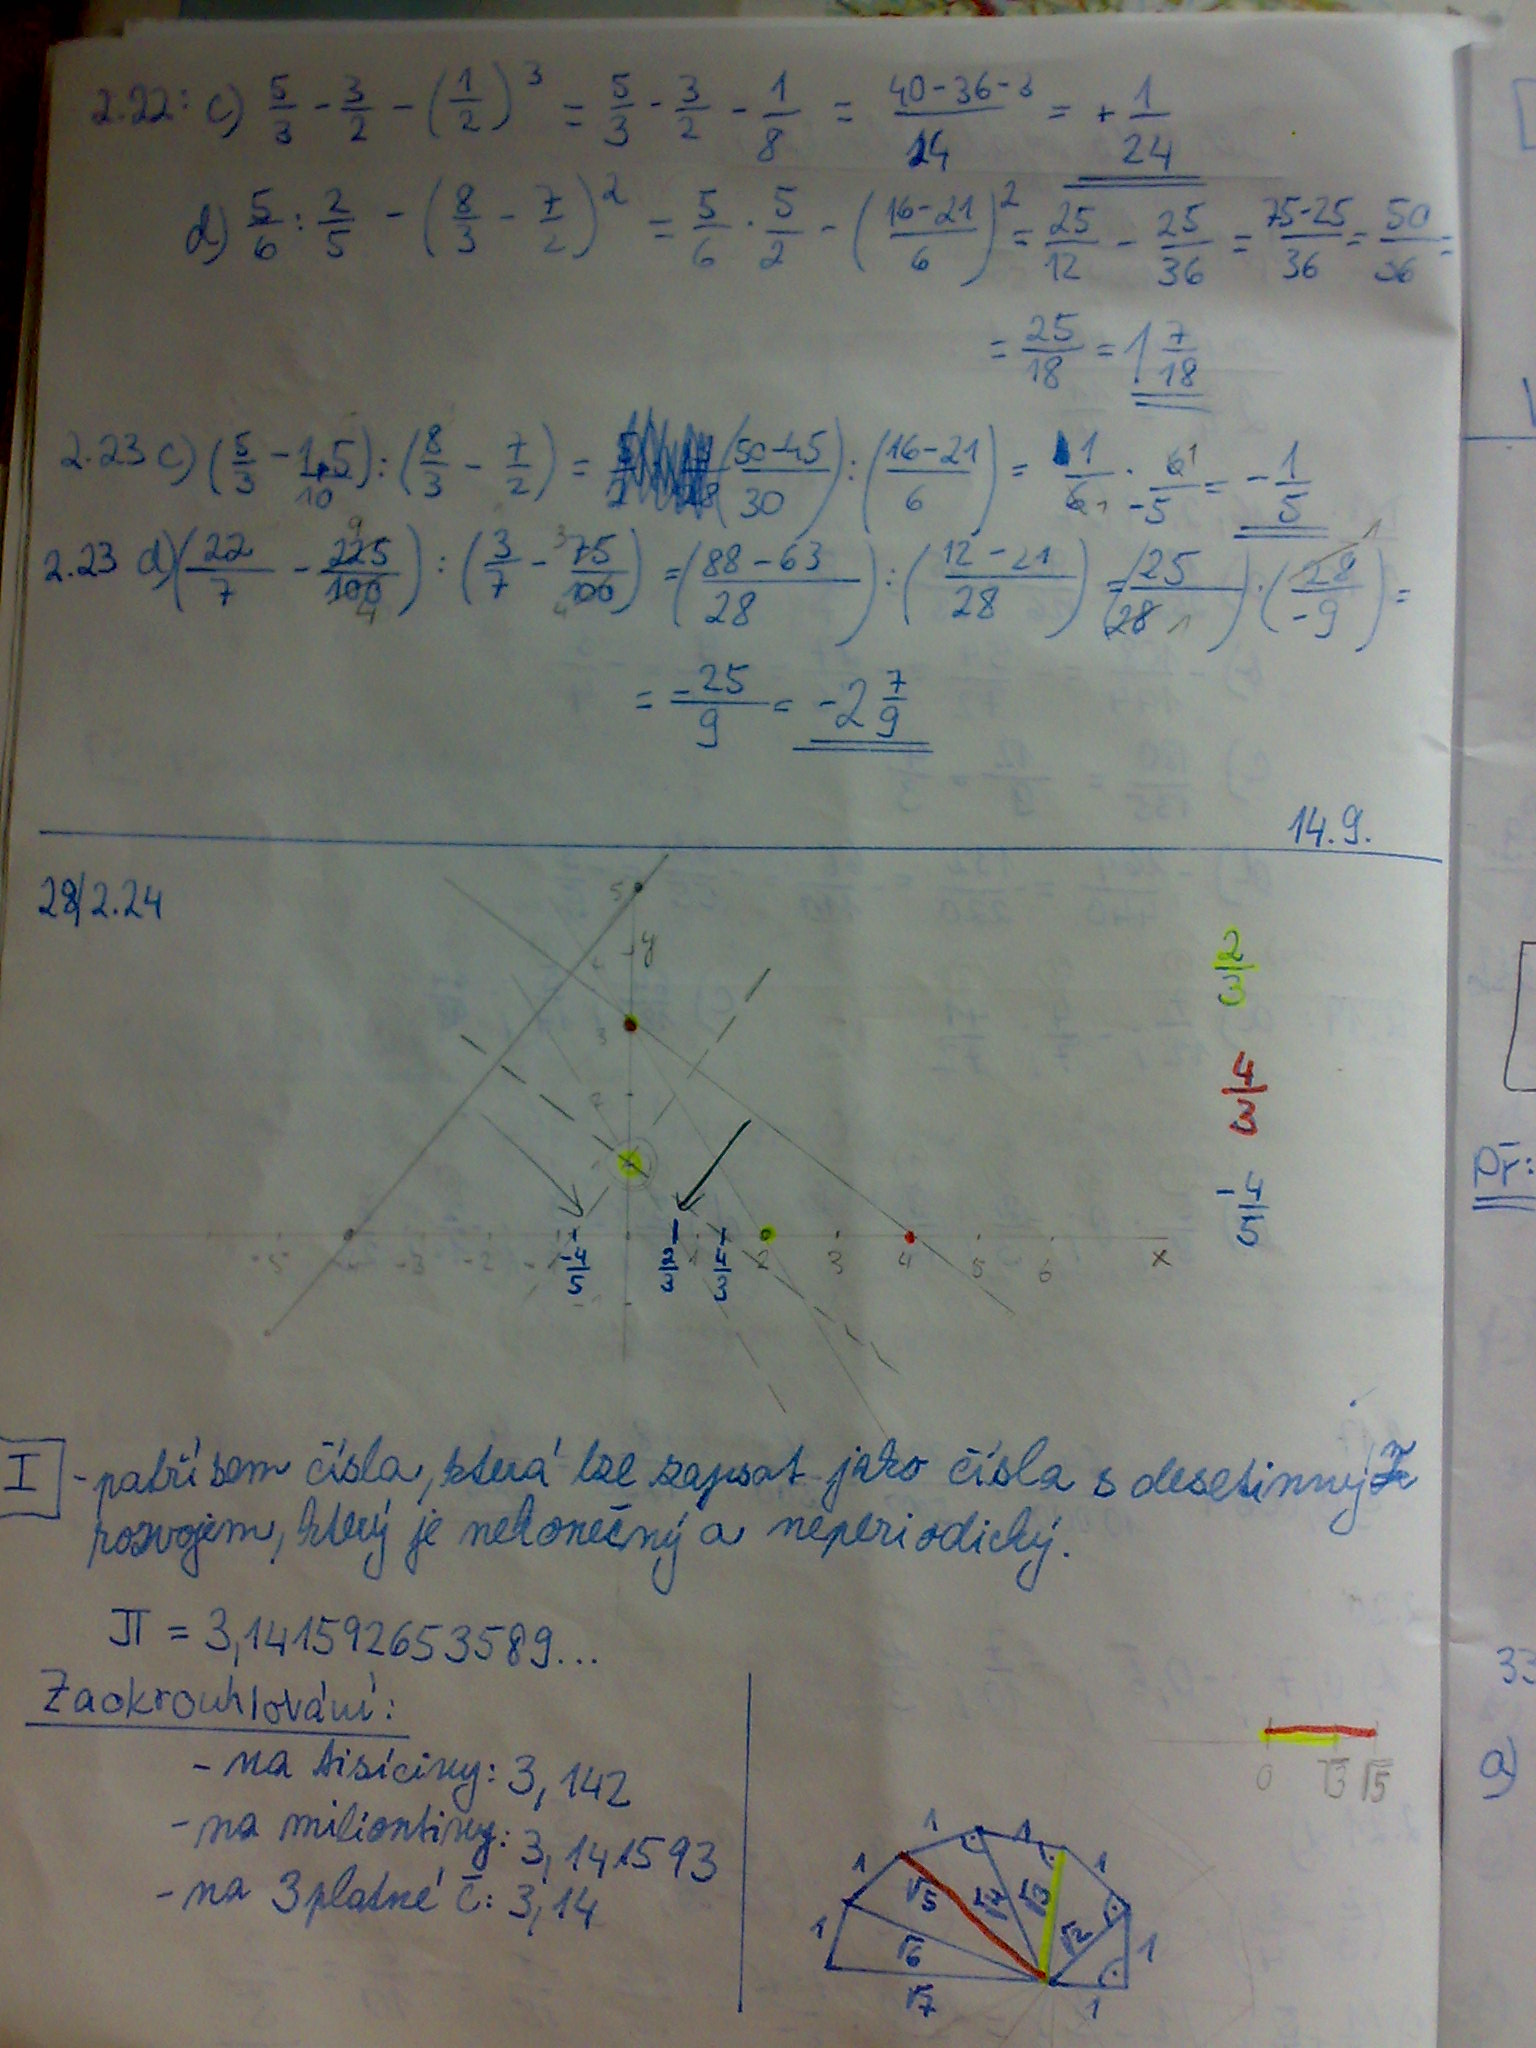 2.22: c) 5/3 - 3/2 - (1/2)^3 = 5/3 - 3/2 - 1/8 = (40-36-3)/24 = + 1/24
d) 5/6 : 2/5 - (8/3 - 7/2)^2 = 5/6 · 5/2 - ((16-21)/6)^2 = 25/12 - 25/36 = (75-25)/36 = 50/36 =
= 25/18 = 1 7/18
2.23 c) (5/3 - 1,5/10) : (8/3 - 7/2) = ((50-45)/30) : ((16-21)/6) = 1/6 · 6/-5 = - 1/5
2.23 d) (22/7 - 225/100) : (3/7 - 75/100) = ((88-63)/28) : ((12-21)/28) = (25/28) · (28/-9) =
= -25/9 = -2 7/9
14.9.
28/2.24
5
y
2/3
3
4/3
2
-4/5
-5 -3 -2 2 3 4 5 6 x
-4/5 2/3 4/3
I - patří sem čísla, která lze zapsat jako čísla s desetinným
rozvojem, který je nekonečný a neperiodický.
π = 3,141592653589...
Zaokrouhlování:
- na tisíciny: 3,142
- na miliontiny: 3,141593
- na 3 platné č: 3,14
0 √3 √5
1 1 1 1 1 1 1
√5 √4 √3 √2
√6
√7
Př:
33
a)